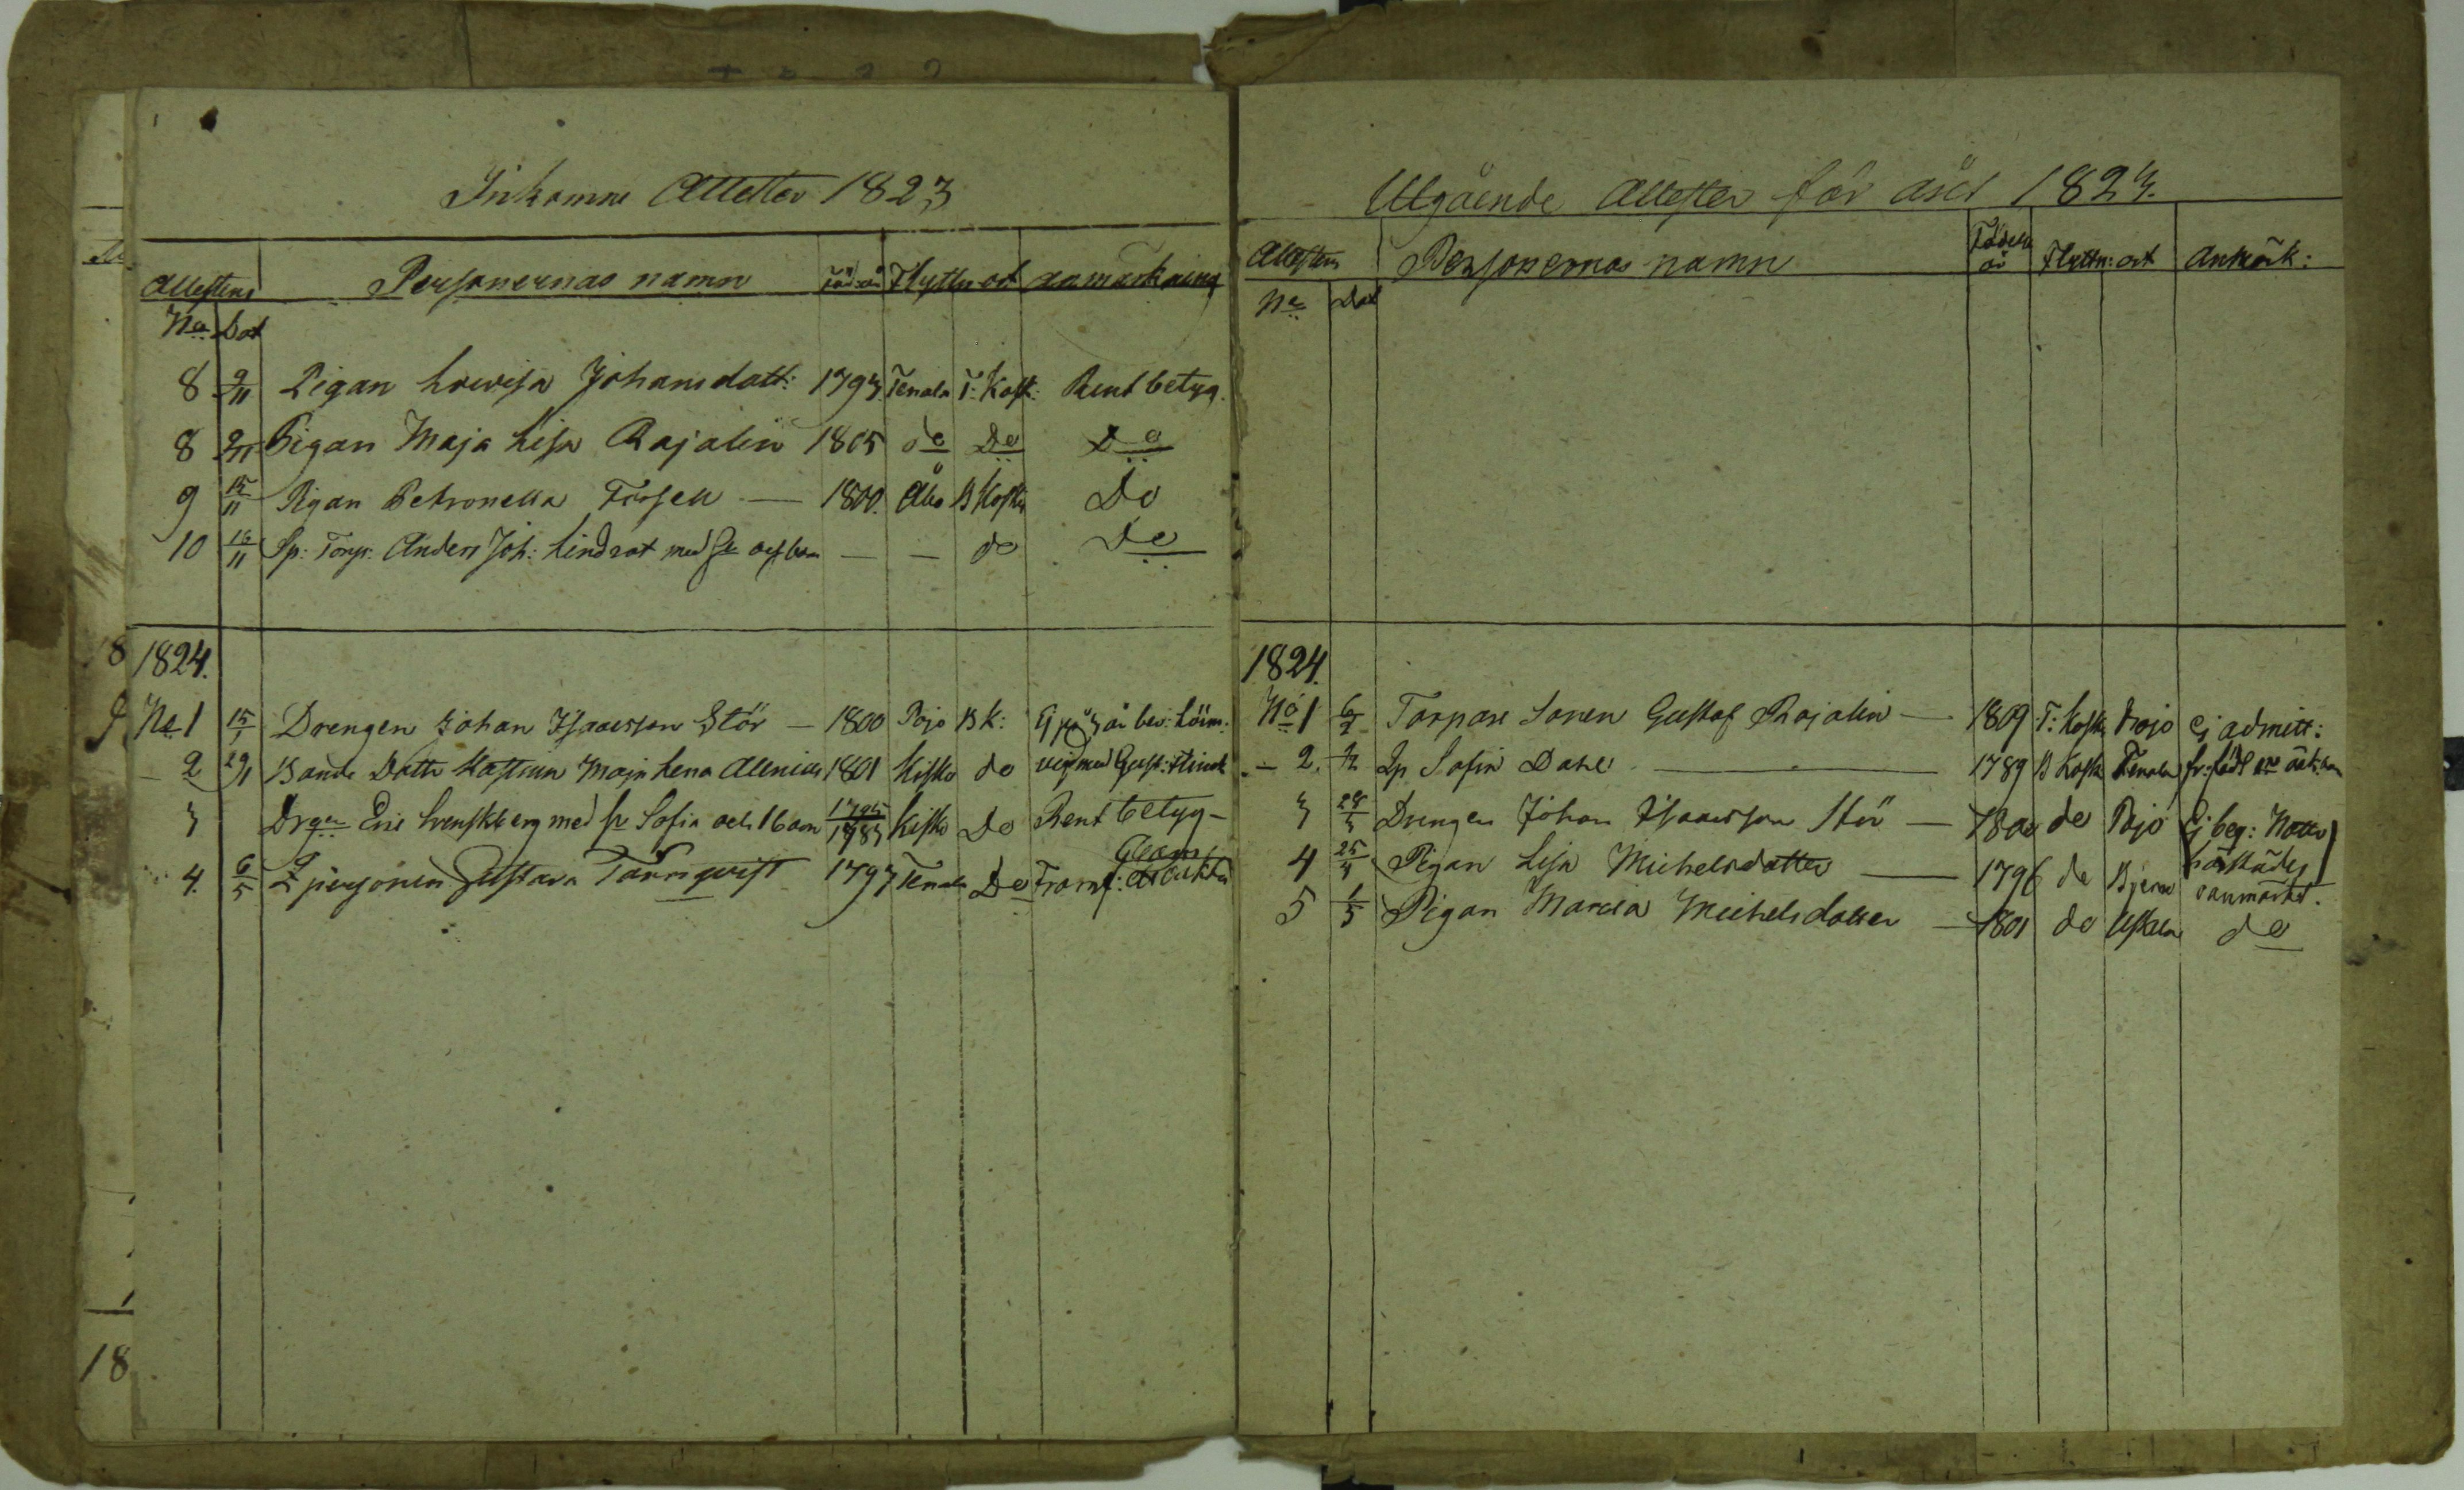 Inkomne Attester 1823
Attestens Personernas namn Föd: år Flyttn: ort anmärkning
No Dat
8 9/11 Pigan Lovisa Johansdott: 1793 Tenala T: Kosk: Rent betyg.
8 9/11 Pigan Maja Lisa Rajalin 1805 do Do Do
9 15/11 Pigan Petronella Forsell — 1800. Åbo B Koskis Do
10 16/11 Sp: Torp: Anders Joh: Lindrot med — — do Do
1824.
No 1 15/1 Drengen Johan Isaacsson Stör — 1800 Pojo B K: Ej på 3 år
2 29/1 Bonde Dottr Maja Lena Allenius 1801 Kisko do med Gust:
3 Drgen Eric Svenskberg med hu Sofia och 1 barn 1795/1783 Kisko Do Rent betyg —
4. 6/5 Qpersonen Gustava Törnqvist 1793 Tenala Do
18
Utgående Attester för året 1823.
Attestens Personernas namn Födels år Flyttn: ort Anmärk:
No Dat
1824.
No 1 6/2 Torpare Sonen Gustaf Rajalin — 1809 T: Kosk: Pojo Ej admitt:
— 2. Qp Sofia Dahl — 1789 B Kosk Tenala
3 28/3 Drengen Johan Isaacsson Stör — 1800 do Pojo Ej beg: Nattv
4 25/4 Pigan Lisa Michelsdotter — 1796 do Bjerno härstädes
oanmärkt.
5 1/5 Pigan Maria Michelsdotter — 1801 do Uskela do